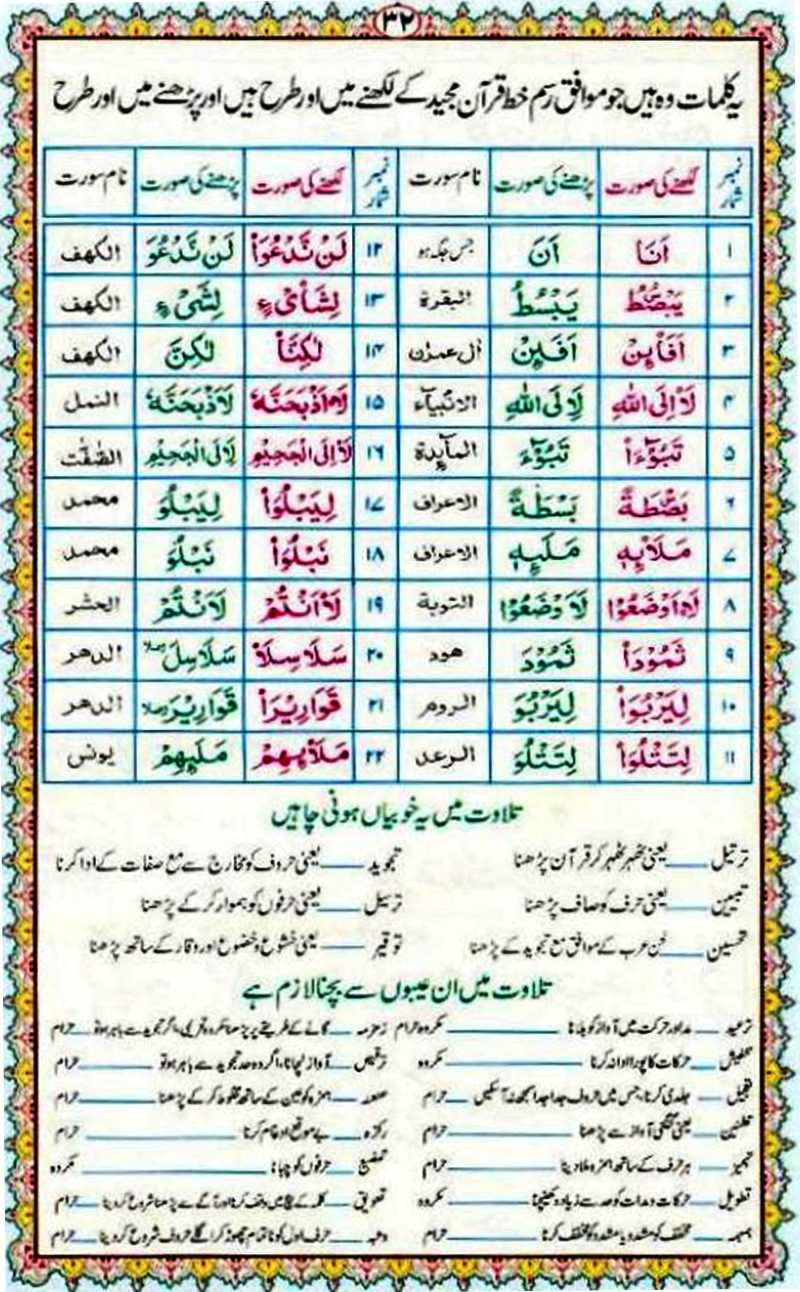 ۳۲
یہ کلمات وہ ہیں جو موافق رسم خط قرآن مجید کے لکھنے میں اور طرح ہیں اور پڑھنے میں اور طرح
نمبر شمار لکھنے کی صورت پڑھنے کی صورت نام سورت نمبر شمار لکھنے کی صورت پڑھنے کی صورت نام سورت
۱ اَنَا اَنَ جس جگہ ہو ۱۲ لَنْ نَّدْعُوَا۟ لَنْ نَّدْعُوَ الكهف
۲ يَبْصُۜطُ يَبْسُطُ البقرة ۱۳ لِشَا۟یْءٍ لِشَیْءٍ الكهف
۳ اَفَا۟ئِنْ اَفَئِنْ اٰل عمرٰن ۱۴ لٰكِنَّا۟ لٰكِنَّ الكهف
۴ لَا۟اِلَى اللّٰهِ لَاِلَى اللّٰهِ الانبیآء ۱۵ لَا۟اَذْبَحَنَّهٗ لَاَذْبَحَنَّهٗ النمل
۵ تَبُوْٓءَا۟ تَبُوْٓءَ المآئدة ۱۶ لَا۟اِلَى الْجَحِيْمِ لَاِلَى الْجَحِيْمِ الصّٰفّٰت
۶ بَصْۜطَةً بَسْطَةً الاعراف ۱۷ لِيَبْلُوَا۟ لِيَبْلُوَ محمد
۷ مَلَا۟ئِهٖ مَلَئِهٖ الاعراف ۱۸ نَبْلُوَا۟ نَبْلُوَ محمد
۸ لَا۟اَوْضَعُوْا لَاَوْضَعُوْا التوبة ۱۹ لَا۟اَنْتُمْ لَاَنْتُمْ الحشر
۹ ثَمُوْدَا۟ ثَمُوْدَ هود ۲۰ سَلَاسِلَا۟ سَلَاسِلَ الدهر
۱۰ لِيَرْبُوَا۟ لِيَرْبُوَ الروم ۲۱ قَوَارِيْرَا۟ قَوَارِيْرَ الدهر
۱۱ لِتَتْلُوَا۟ لِتَتْلُوَ الرعد ۲۲ مَلَا۟ئِهِمْ مَلَئِهِمْ یونس
تلاوت میں یہ خوبیاں ہونی چاہیں
ترتیل ــــ یعنی ٹھہر ٹھہر کر قرآن پڑھنا تجوید ــــ یعنی حروف کو مخارج سے مع صفات کے ادا کرنا
تبیین ــــ یعنی حرف کو صاف پڑھنا ترسیل ــــ یعنی حرفوں کو ہموار کر کے پڑھنا
تحسین ــــ لحن عرب کے موافق مع تجوید کے پڑھنا توقیر ــــ یعنی خشوع و خضوع اور وقار کے ساتھ پڑھنا
تلاوت میں ان عیبوں سے بچنا لازم ہے
ترعید ــــ مد اور حرکت میں آواز کو ہلانا ــــ مکروہ حرام زمزمہ ــــ گانے کے طریقے پر پڑھنا مکروہ تحریمی، اگر تجوید سے باہر ہو تو ــــ حرام
ــــ حرکات کا پورا ادا نہ کرنا ــــ مکروہ ترقیص ــــ آواز نچانا، اگر وہ حد تجوید سے باہر ہو تو ــــ حرام
تعجیل ــــ جلدی کرنا، جس میں حروف جدا جدا سمجھ نہ آسکیں ــــ حرام عنعنہ ــــ ہمزہ کو عین کے ساتھ مخلوط کر کے پڑھنا ــــ حرام
ــــ یعنی گنگنی آواز سے پڑھنا ــــ حرام ــــ بے موقع ادغام کرنا ــــ حرام
ــــ ہر حرف کے ساتھ ہمزہ ملا دینا ــــ حرام ــــ حرفوں کو چبانا ــــ مکروہ
تطویل ــــ حرکات و مدات کو حد سے زیادہ کھینچنا ــــ مکروہ تعویق ــــ کلمہ کے بیچ میں وقف کرنا اور آگے سے پڑھنا شروع کر دینا ــــ حرام
ہمہمہ ــــ مخفف کو مشدد یا مشدد کو مخفف کرنا ــــ حرام ــــ حرف اول کو ناتمام چھوڑ کر اگلے حروف شروع کر دینا ــــ حرام